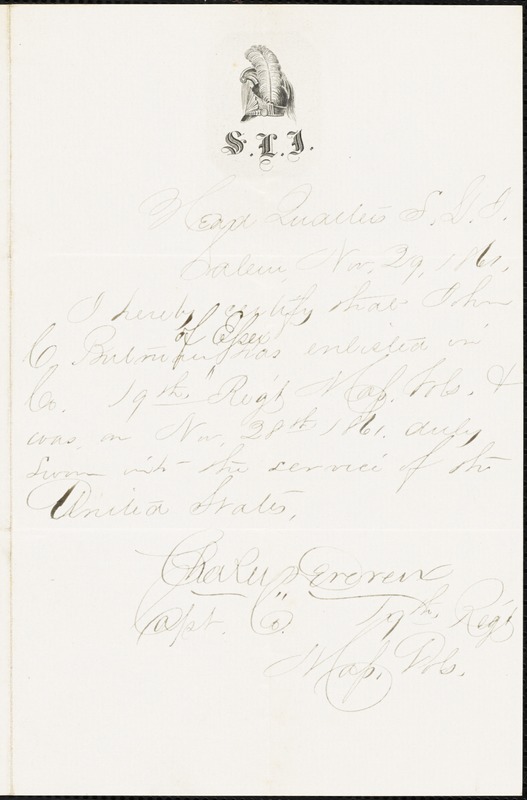 S.L.I.
Head Quarters S. L. I.
Salem, Nov. 29, 1861.
I hereby certify that John
of Essex
C Burnham has enlisted in
Co. 19th Regt Mass. Vols. &
was, on Nov. 28th 1861. duly
sworn into the service of the
United States,
Charles Devereux
Capt. Co. 19th Regt
Mass. Vols.